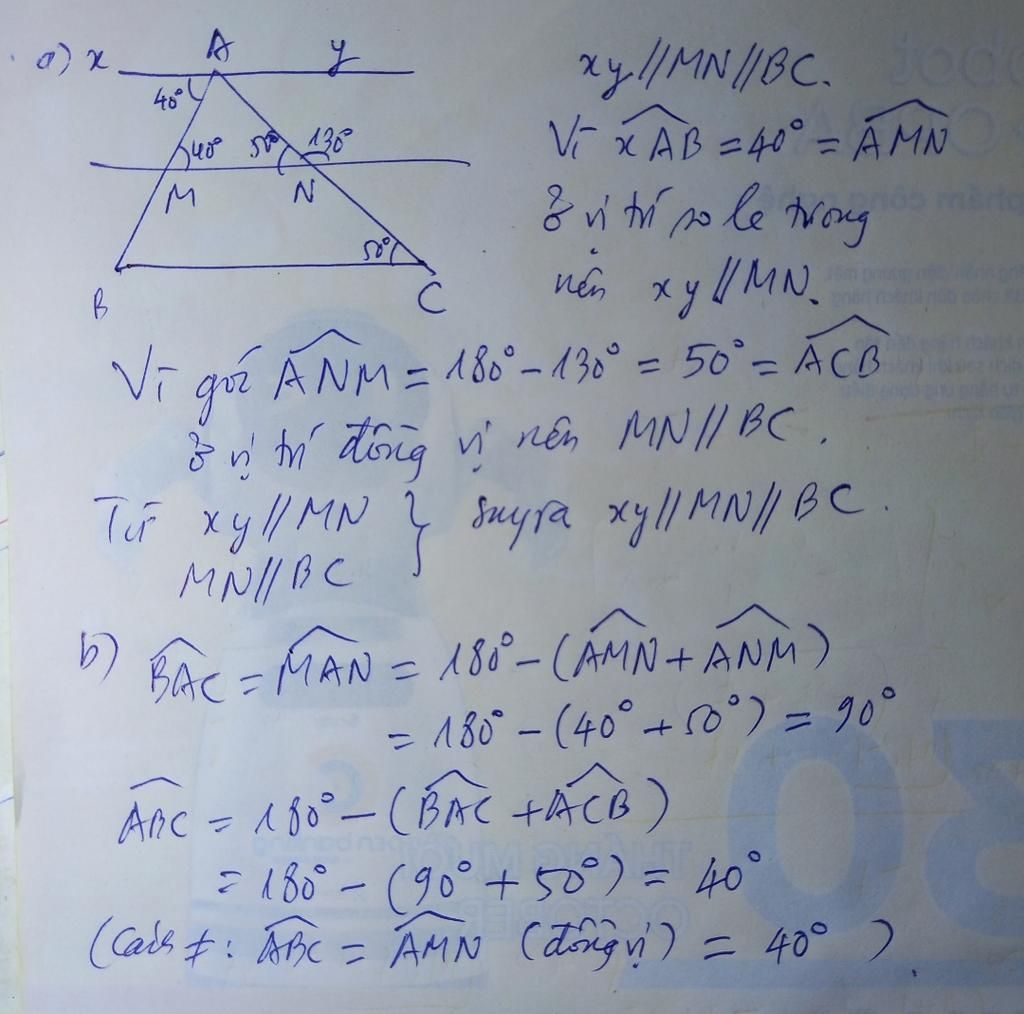 a) x A y
40°
40° 50° 130°
M N
50°
B C
xy//MN//BC.
Vì xAB = 40° = AMN
ở vị trí so le trong
nên xy//MN.
Vì góc ANM = 180° - 130° = 50° = ACB
ở vị trí đồng vị nên MN//BC.
Từ xy//MN } suy ra xy//MN//BC.
MN//BC
b) BAC = MAN = 180° - (AMN + ANM)
= 180° - (40° + 50°) = 90°
ABC = 180° - (BAC + ACB)
= 180° - (90° + 50°) = 40°
(Cách ≠: ABC = AMN (đồng vị) = 40°).
phẩm công nghệ
THÁNG MƯỜI
OCTOBER
30